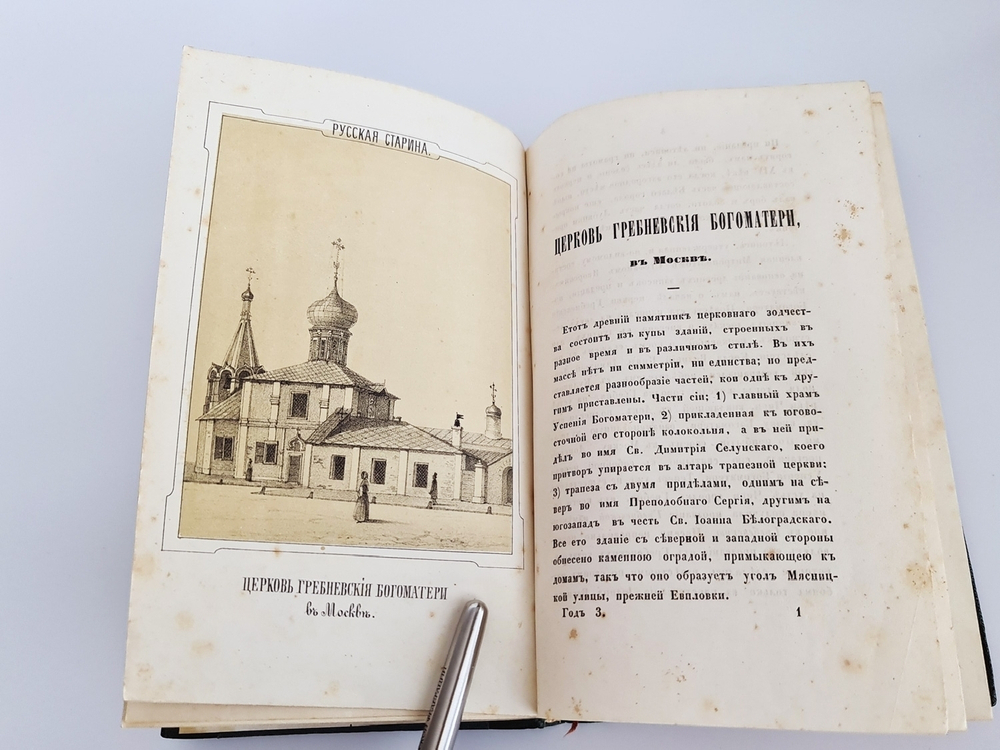 РУССКАЯ СТАРИНА.
ЦЕРКОВЬ ГРЕБНЕВСКІЯ БОГОМАТЕРИ
въ Москвѣ.
ЦЕРКОВЬ ГРЕБНЕВСКІЯ БОГОМАТЕРИ,
въ Москвѣ.
Етотъ древній памятникъ церковнаго зодчест-
ва состоитъ изъ купы зданій, строенныхъ въ
разное время и въ различномъ стилѣ. Въ ихъ
массѣ нѣтъ ни симметріи, ни единства; но пред-
ставляется разнообразіе частей, кои однѣ къ дру-
гимъ приставлены. Части сіи; 1) главный храмъ
Успенія Богоматери, 2) прикладенная къ югово-
сточной его сторонѣ колокольня, а въ ней при-
дѣлъ во имя Св. Димитрія Селунскаго, коего
притворъ упирается въ алтарь трапезной церкви;
3) трапеза съ двумя придѣлами, однимъ на сѣ-
веръ во имя Преподобнаго Сергія, другимъ на
югозападъ въ честь Св. Іоанна Бѣлоградскаго.
Все ето зданіе съ сѣверной и западной стороны
обнесено каменною оградой, примыкающею къ
домамъ, такъ что оно образуетъ уголъ Мясниц-
кой улицы, прежней Евпловки.
Годъ 3. 1